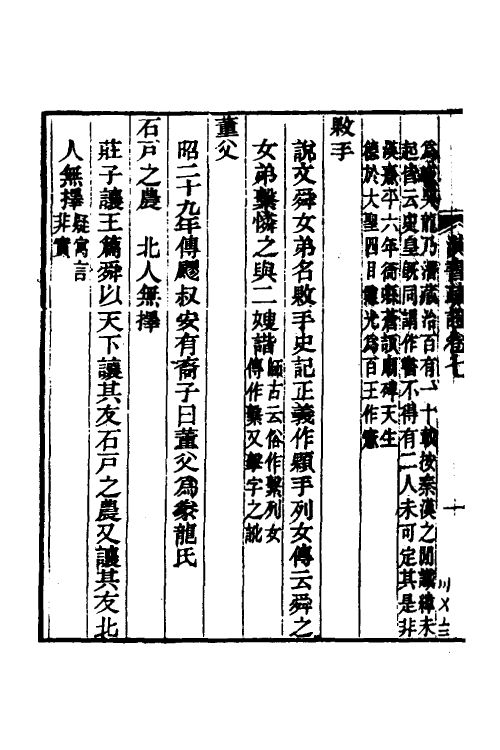 爲
乃潛藏治百有一十載按秦漢之閒讖緯未
起僞云史皇旣同謂作書不得有二人未可定其是非
漢熹平六年衙縣蒼頡廟碑天生
德於大聖四目靈光爲百王作憲
敤手
說文舜女弟名敤手史記正義作顆手列女傳云舜之
女弟繫憐之與二嫂諧師古云俗作擊列女
傳作繫又擊字之訛
董父
昭二十九年傳飂叔安有裔子曰董父爲豢龍氏
石戸之農　北人無擇
莊子讓王篇舜以天下讓其友石戸之農又讓其友北
人無擇疑寓言
非實